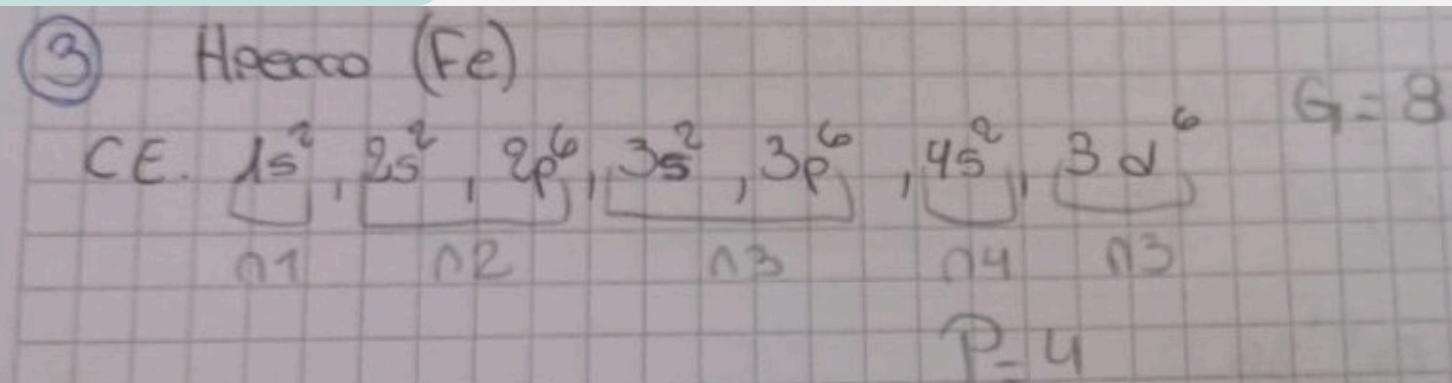 3 Hierro (Fe)
G = 8
CE. 1s², 2s², 2p⁶, 3s², 3p⁶, 4s², 3d⁶
n1 n2 n3 n4 n3
P = 4